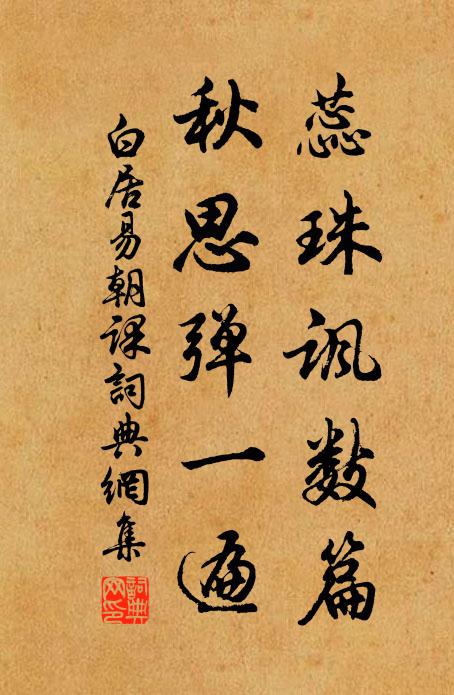 蕊珠讽数篇
秋思弹一遍
白居易朝课词典網集
詞典网印